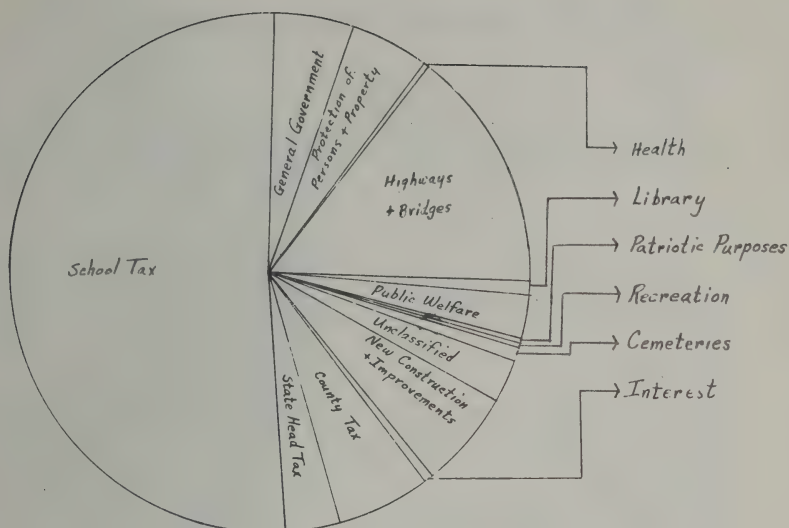 School Tax
General Government
Protection of
Persons + Property
Highways
+ Bridges
Public Welfare
Unclassified
New Construction
+ Improvements
County Tax
State Head Tax
Health
Library
Patriotic Purposes
Recreation
Cemeteries
Interest